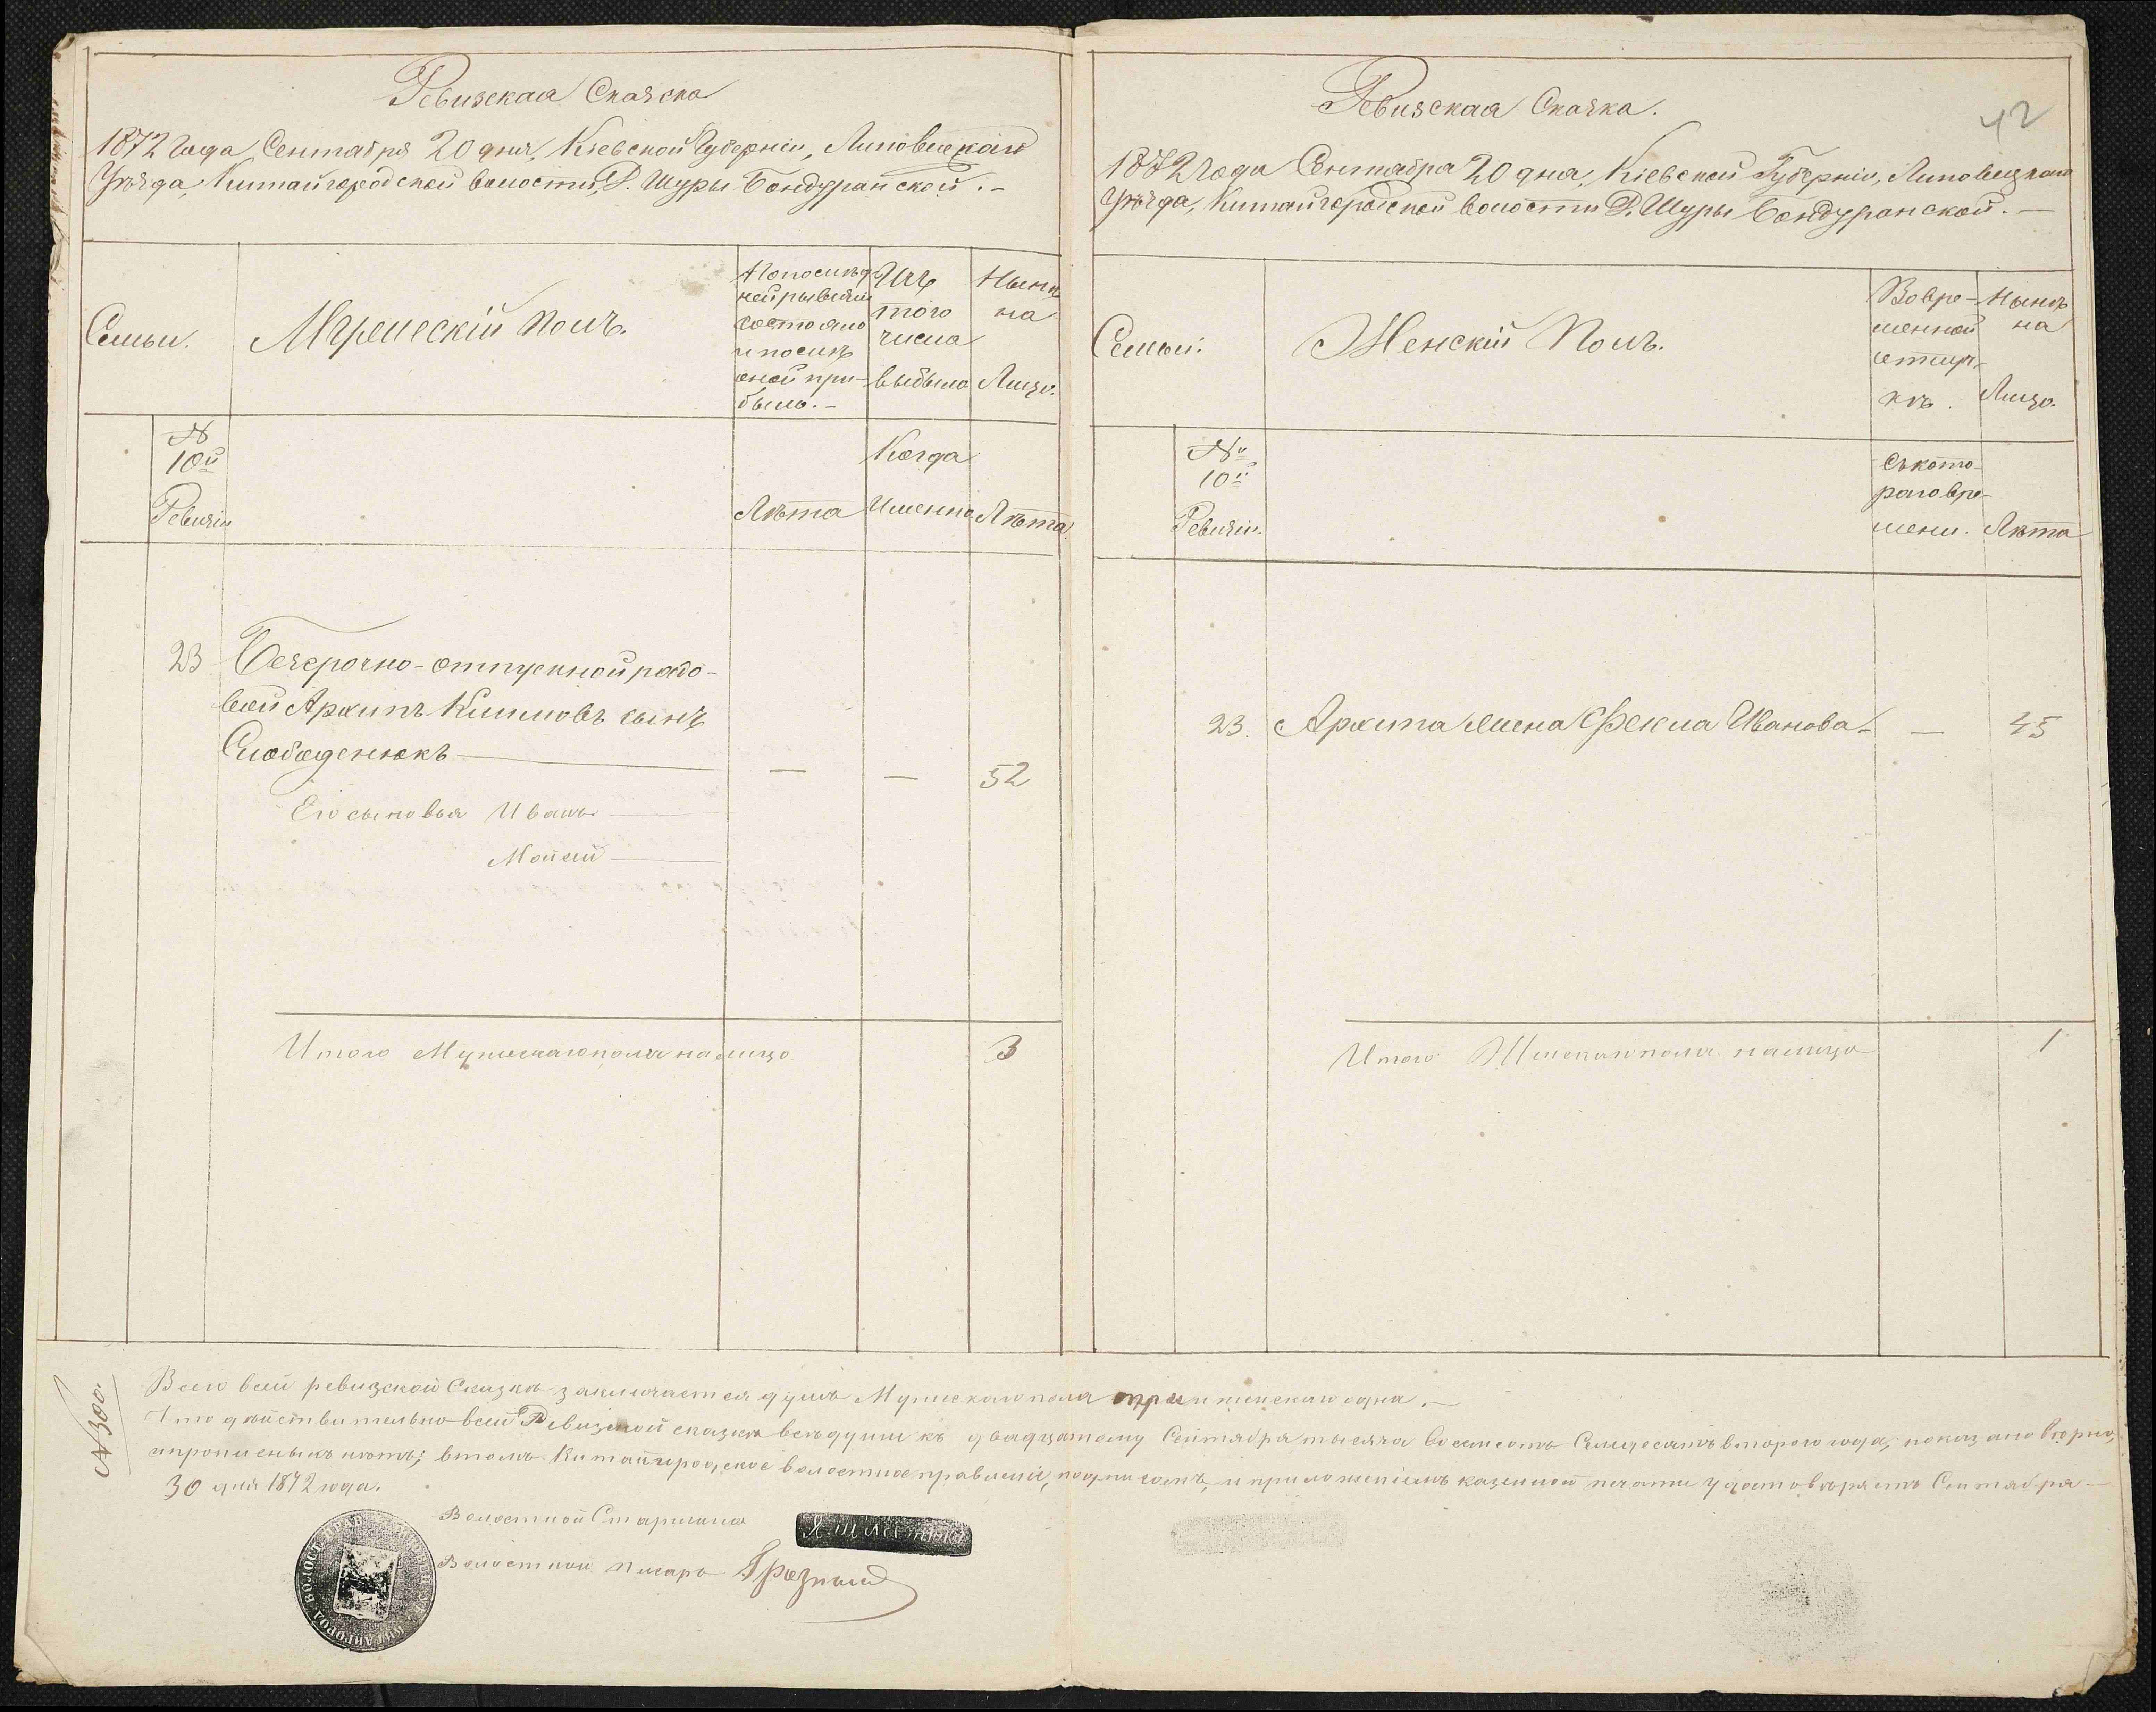 Ревизская Сказска
1872 Года Сентября 20 дня, Кіевской Губерніи, Липовецкаго
Уѣзда, Китайгородской волости, Д. Шуры Бондуранской. –
Семьи.
Мужескій Полъ.
По послѣд-
ней ревизіи
состояло
и послѣ
оной при-
было. –
Изъ
того
числа
выбыло
Нынѣ
на
Лицо.
№
10й
Ревизіи
Лѣта
Когда
Именно
Лѣта
23 Безсрочно-отпускной рядо-
вой Архипъ Климовъ сынъ
Слободенюкъ — — — 52
Его сыновья Иванъ
Мойсей
Итого Мужескаго пола на лицо 3
Ревизская Сказка.
42
1872 года Сентября 20 дня, Кіевской Губерніи, Липовецкаго
Уѣзда, Китайгородской волости Д. Шуры Бондуранской. —
Семьи.
Женскій Полъ.
Во вре-
менной
отлуч-
кѣ.
Нынѣ
на
Лицо.
№
10й
Ревизіи.
Съ кото-
раго вре-
мени.
Лѣта
23. Архипа жена Фекла Иванова – — 45
Итого Женскаго пола на лицо 1
№ 300.
Всего в сей ревизской Сказкѣ заключается душъ Мужескаго пола три и женскаго одна. —
Что дѣйствительно в сей Ревизской сказкѣ всѣ души къ двадцатому Сентября тысяча восемсотъ Семдесятъ второго года, показано вѣрно,
и прописныхъ нѣтъ; в томъ Китайгородское волостное правленіе, подписомъ, и приложеніемъ казенной печати удостовѣряетъ Сентября —
30 дня 1872 года.
Волостной Старшина
Волостной Писарь
КИТАЙГОРОД. ВОЛОСТ. ПРАВ.